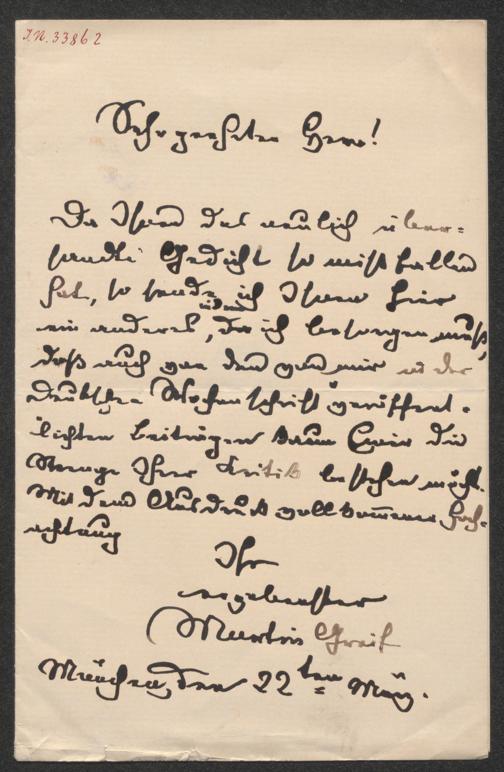 I.N. 33862
Sehr geehrter Herr!
Da Ihnen das neulich über-
sandte Gedicht so missfallen
hat, so sende ich Ihnen hier
ein anderes, indem ich besorgen muß,
daß auch von den von mir in der
Deutschen Wochenschrift veröffent-
lichten Beiträgen kaum Einer die
Strenge Ihrer Kritik bestehen möcht.
Mit dem Ausdruck vollkommener Hoch-
achtung
Ihr
ergebenster
Martin Greif
München, den 22ten März.